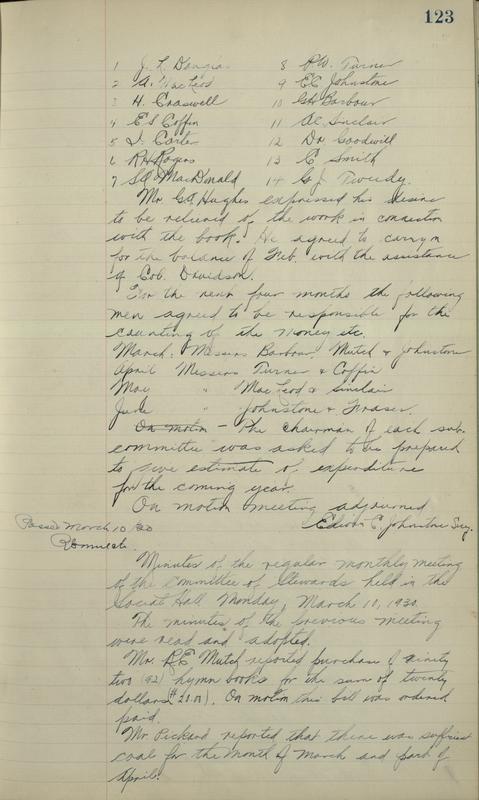 123
1 J. L. Douglas 8 P.W. Turner
2 A. MacLeod 9 E.C. Johnstone
3 H. Craswell 10 G.H. Barbour
4 E S Coffin 11 A.C. Sinclair
5 J. Carter 12 Dr. Goodwill
6 R.H. Rogers 13 C Smith
7 MacDonald 14 G.J. Tweedy.
Mr. G.A. Hughes expressed his desire
to be relieved of the work in connection
with the book. He agreed to carry on
for the balance of Feb. with the assistance
of Davidson.
For the next four months the following
men agreed to be responsible for the
counting of the money etc.
March: Messers Barbour, Mutch & Johnstone
April Messers Turner & Coffin
May " MacLeod & Sinclair
June " Johnstone & Fraser.
On motion - The chairman of each sub-
committee was asked to be prepared
to give estimate of expenditure
for the coming year.
On motion meeting adjourned
Passed March 10/30 Edwin C. Johnstone Secy.
Minutes of the regular monthly meeting
of the Committee of Stewards held in the
Social Hall Monday, March 10, 1930.
The minutes of the previous meeting
were read and adopted.
Mr. R.E. Mutch reported purchase of ninety
two (92) hymn books for the sum of twenty
dollars. On motion this bill was ordered
paid.
Mr Pickard reported that there was sufficient
coal for the month of March and part of
April.